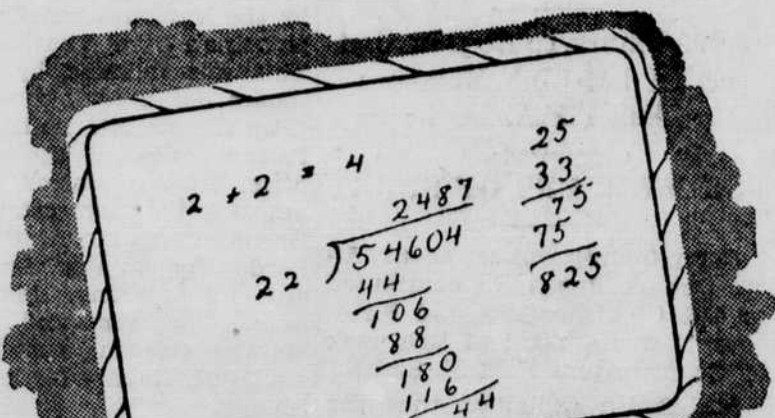 2 + 2 = 4
2487
22 ) 54604
44
106
88
180
116
44
25
33
75
75
825